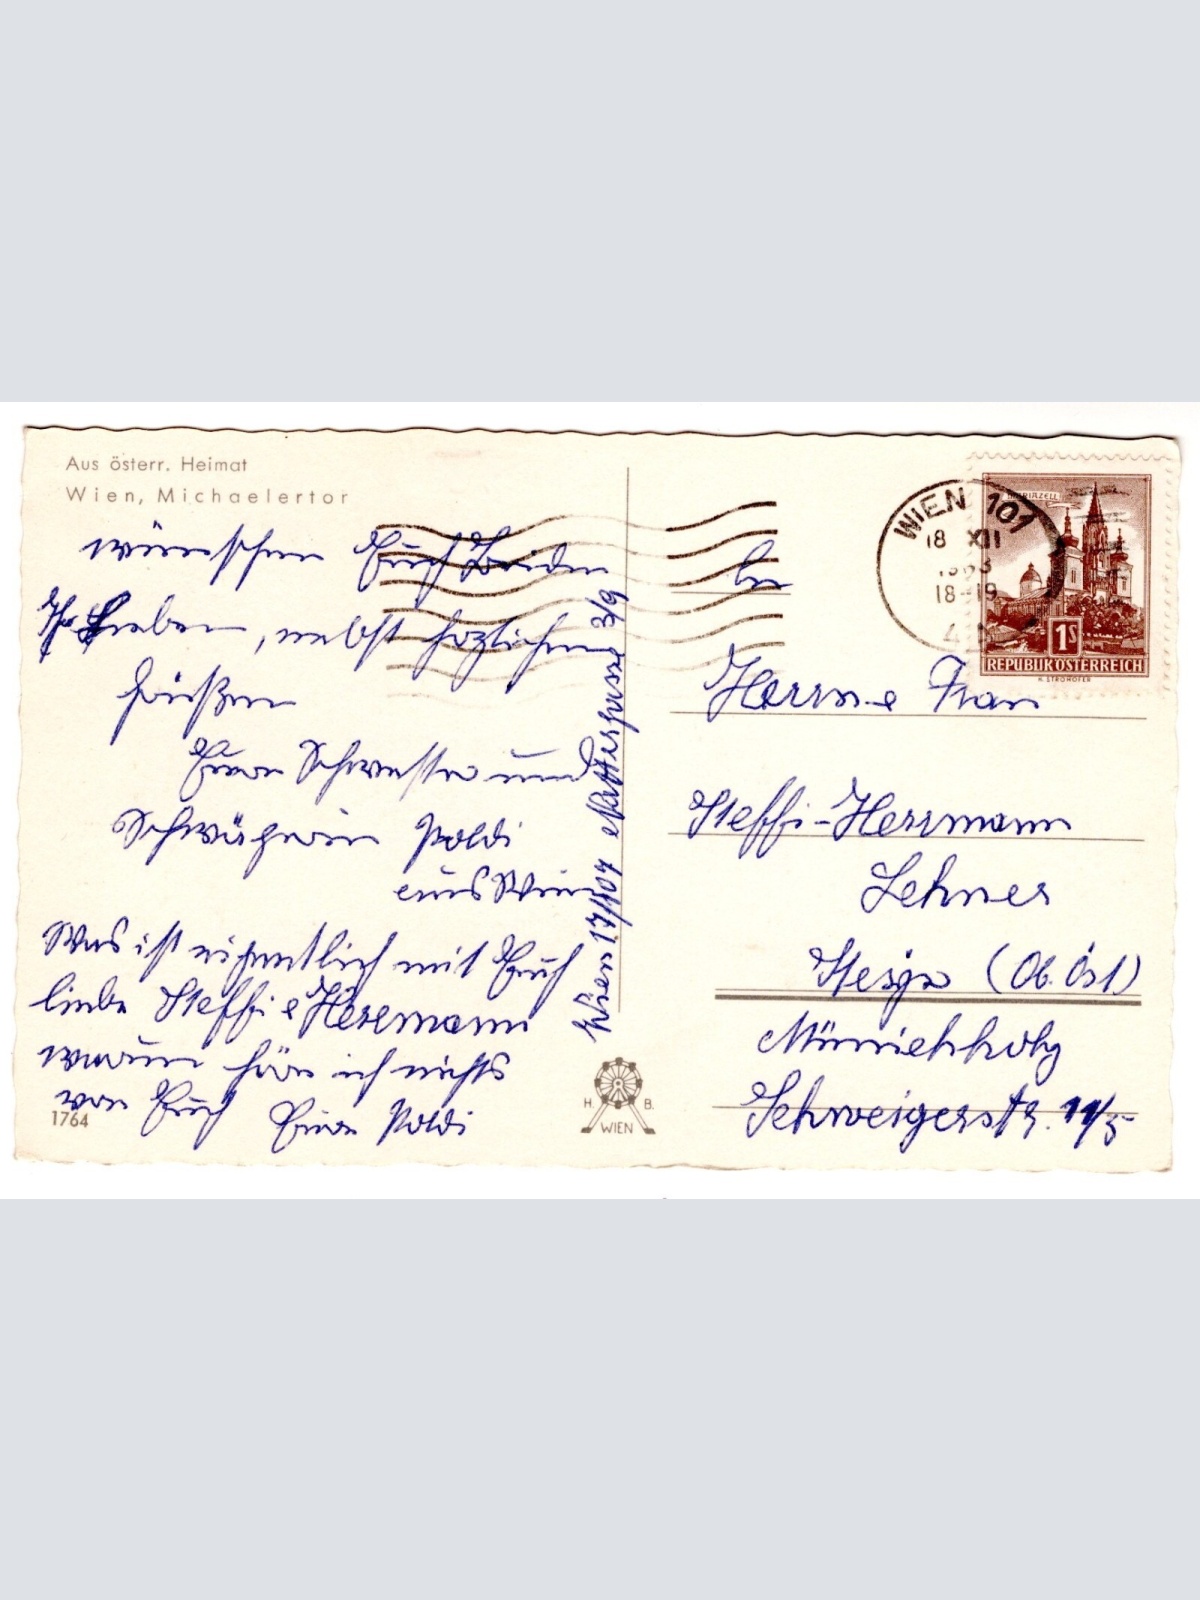 Aus österr. Heimat
Wien, Michaelertor
wünschen Euch Beiden
Ihr Lieben, nebst herzlichen
Grüßen
Eure Schwester und
Schwägerin Poldi
aus Wien
Was ist eigentlich mit Euch
liebe Steffi e Herrmann
warum höre ich nichts
von Euch Eure Poldi
1764
Wien 17/107 3/9
H. B.
WIEN
WIEN 101
18 XII
18-19
MARIAZELL
1S
REPUBLIK ÖSTERREICH
H. STROHOFER
An
Herrn e Frau
Steffi-Herrmann
Lehner
Steyr (Ob. Öst)
Münichholz
Schweigerstr. 11/5